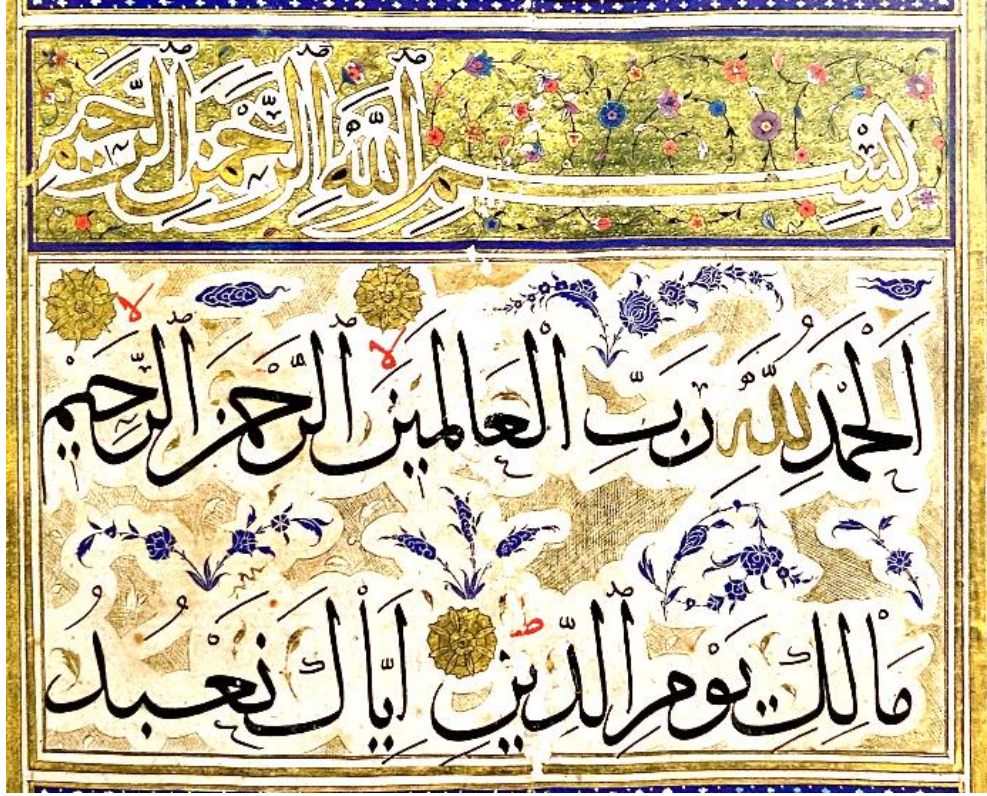 بِسْمِ ٱللَّهِ ٱلرَّحْمٰنِ ٱلرَّحِيمِ
اَلْحَمْدُ لِلّٰهِ رَبِّ الْعَالَمِينَ ۙ ٱلرَّحْمٰنِ ٱلرَّحِيمِ ۙ
مَالِكِ يَوْمِ ٱلدِّينِ ۗ اِيَّاكَ نَعْبُدُ